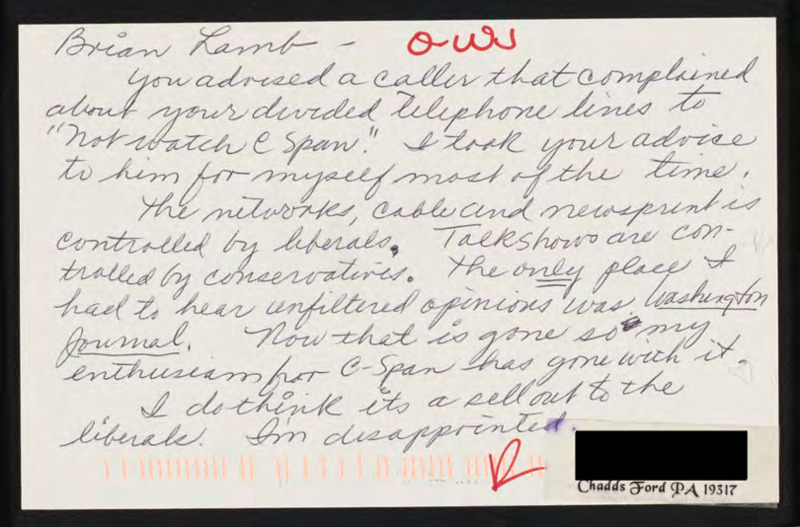 Brian Lamb - OWJ
You advised a caller that complained
about your divided telephone lines to
"Not watch C Span". I took your advice
to him for myself most of the time.
The networks, cable and newsprint is
controlled by liberals. Talkshows are con-
trolled by conservatives. The only place I
had to hear unfiltered opinions was Washington
Journal. Now that is gone so my
enthusiasm for C-Span has gone with it.
I do think its a sellout to the
liberals. I'm disappointed.
Chadds Ford PA 19317